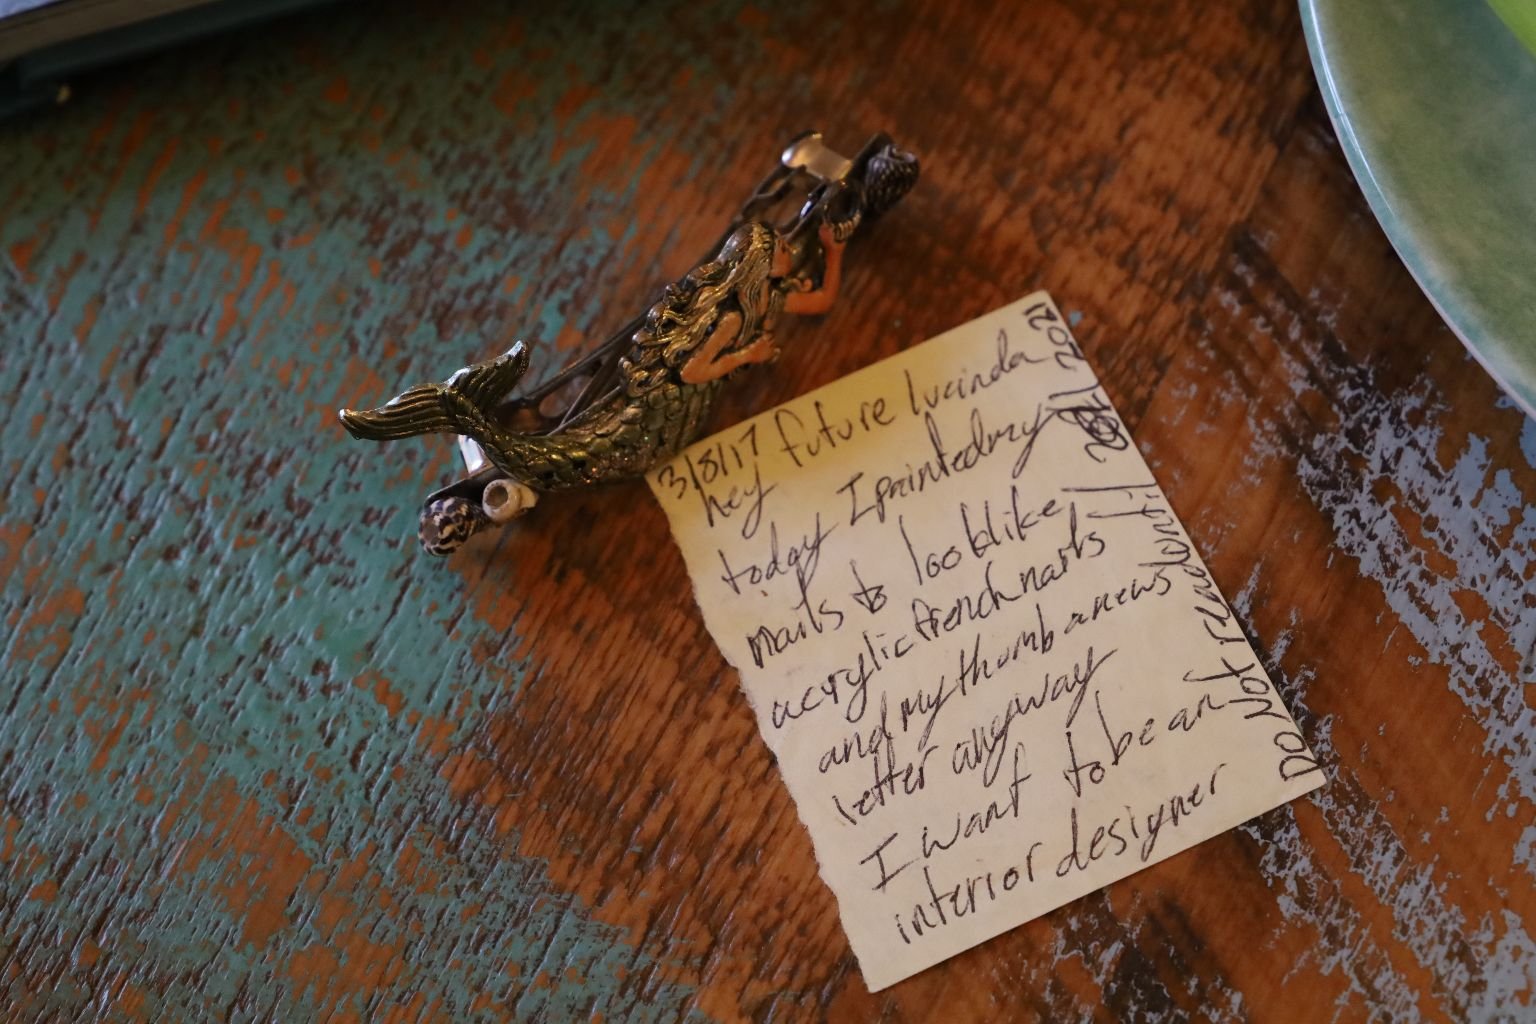 3/8/17
hey future lucinda
today I painted my
nails to look like
acrylic french nails
and my thumb anews
letter anyway
I want to be an
interior designer
DO NOT read until 2021